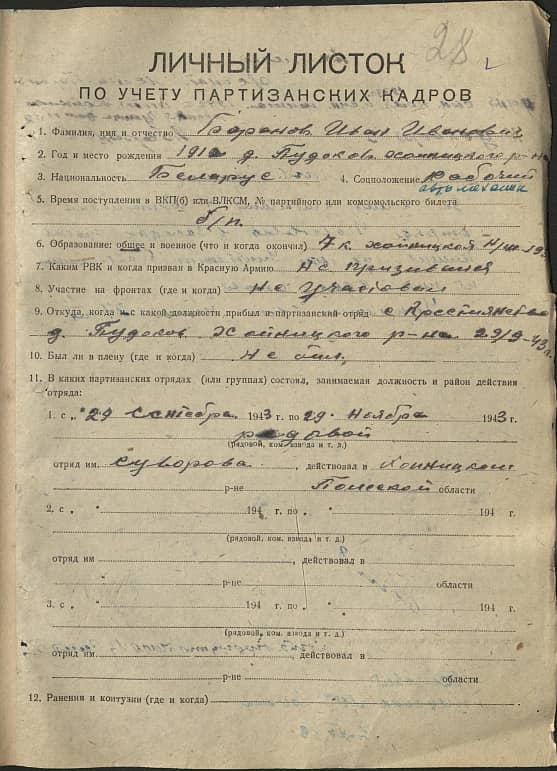 28
ЛИЧНЫЙ ЛИСТОК
ПО УЧЕТУ ПАРТИЗАНСКИХ КАДРОВ
1. Фамилия, имя и отчество Баранов Иван Иванович
2. Год и место рождения 1912 д. Пудаков хойницкого р-на
3. Национальность Беларус 4. Соцположение Рабочий
автомеханик
5. Время поступления в ВКП(б) или ВЛКСМ, № партийного или комсомольского билета
б/п.
6. Образование: общее и военное (что и когда окончил) 7 к. хойницкой
7. Каким РВК и когда призван в Красную Армию Не призывался
8. Участие на фронтах (где и когда) Не участвовал
9. Откуда, когда и с какой должности прибыл в партизанский отряд с
д. Пудаков Хойницкого р-на 29/9-43г.
10. Был ли в плену (где и когда) не был.
11. В каких партизанских отрядах (или группах) состоял, занимаемая должность и район действия
отряда:
1. с „29 сентября 1943 г. по 29 ноября 1943 г.
рядовой
(рядовой, ком. взвода и т. д.)
отряд им. Суворова, действовал в Хойницком
р-не Полеской области
2. с „ “ 194 г. по „ “ 194 г.
(рядовой, ком. взвода и т. д.)
отряд им , действовал в
р-не области
3. с „ “ 194 г. по „ “ 194 г.
(рядовой, ком. взвода и т. д.)
отряд им. действовал в
р-не области
12. Ранения и контузии (где и когда)